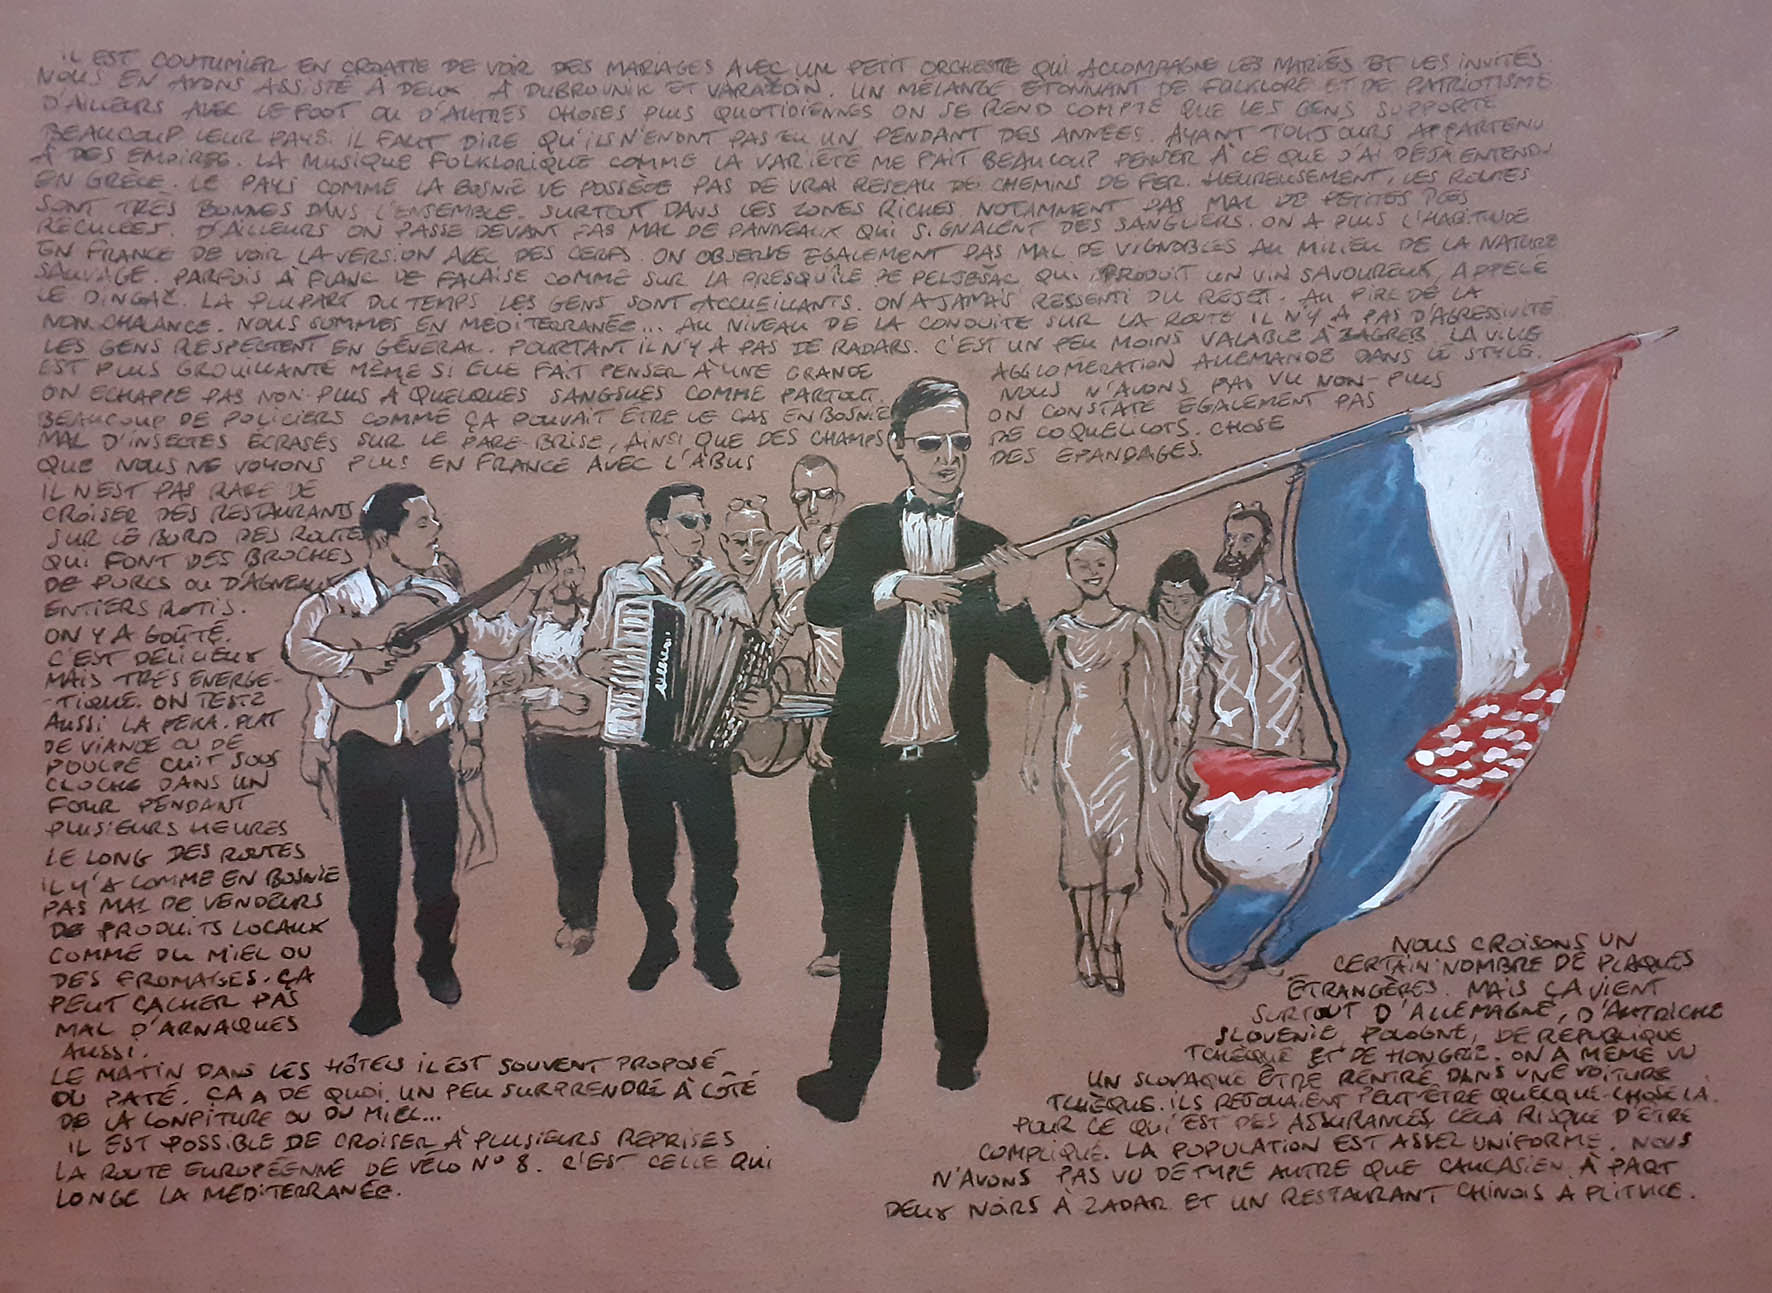 IL EST COUTUMIER EN CROATIE DE VOIR DES MARIAGES AVEC UN PETIT ORCHESTRE QUI ACCOMPAGNE LES MARIÉS ET LES INVITÉS.
NOUS EN AVONS ASSISTÉ A DEUX A DUBROVNIK ET VARAZDIN. UN MÉLANGE ÉTONNANT DE FOLKLORE ET DE PATRIOTISME
D'AILLEURS AVEC LE FOOT OU D'AUTRES CHOSES PLUS QUOTIDIENNES ON SE REND COMPTE QUE LES GENS SUPPORTE
BEAUCOUP LEUR PAYS. IL FAUT DIRE QU'ILS N'EN ONT PAS EU UN PENDANT DES ANNÉES. AYANT TOUJOURS APPARTENU
À DES EMPIRES. LA MUSIQUE FOLKLORIQUE COMME LA VARIÉTÉ ME FAIT BEAUCOUP PENSER À CE QUE J'AI DÉJÀ ENTENDU
EN GRÈCE. LE PAYS COMME LA BOSNIE NE POSSÈDE PAS DE VRAI RESEAU DE CHEMINS DE FER. HEUREUSEMENT, LES ROUTES
SONT TRES BONNES DANS L'ENSEMBLE. SURTOUT DANS LES ZONES RICHES NOTAMMENT PAS MAL DE PETITES
RECULÉES. D'AILLEURS ON PASSE DEVANT PAS MAL DE PANNEAUX QUI SIGNALENT DES SANGLIERS. ON A PLUS L'HABITUDE
EN FRANCE DE VOIR LA VERSION AVEC DES CERFS. ON OBSERVE EGALEMENT PAS MAL DE VIGNOBLES AU MILIEU DE LA NATURE
SAUVAGE. PARFOIS À FLANC DE FALAISE COMME SUR LA PRESQU'ÎLE DE PELJEŠAC QUI PRODUIT UN VIN SAVOUREUX, APPELÉ
LE DINGAC. LA PLUPART DU TEMPS LES GENS SONT ACCUEILLANTS. ON A JAMAIS RESSENTI DU REJET. AU PIRE DE LA
NON.CHALANCE. NOUS SOMMES EN MEDITERRANÉE... AU NIVEAU DE LA CONDUITE SUR LA ROUTE IL N'Y A PAS D'AGRESSIVITÉ
LES GENS RESPECTENT EN GÉNÉRAL. POURTANT IL N'Y A PAS DE RADARS. C'EST UN PEU MOINS VALABLE À ZAGREB. LA VILLE
EST PLUS GROUILLANTE MÊME SI ELLE FAIT PENSER À UNE GRANDE AGGLOMÉRATION ALLEMANDE DANS LE STYLE.
ON ECHAPPE PAS NON-PLUS À QUELQUES SANGSUES COMME PARTOUT. NOUS N'AVONS PAS VU NON-PLUS
BEAUCOUP DE POLICIERS COMME ÇA POUVAIT ÊTRE LE CAS EN BOSNIE ON CONSTATE ÉGALEMENT PAS
MAL D'INSECTES ECRASÉS SUR LE PARE-BRISE, AINSI QUE DES CHAMPS DE COQUELICOTS. CHOSE
QUE NOUS NE VOYONS PLUS EN FRANCE AVEC L'ABUS DES EPANDAGES.
IL N'EST PAS RARE DE
CROISER DES RESTAURANTS
SUR LE BORD DES ROUTES
QUI FONT DES BROCHES
DE PORCS OU D'AGNEAUX
ENTIERS ROTIS.
ON Y A GOÛTÉ.
C'EST DÉLICIEUX
MAIS TRES ENERGE-
-TIQUE. ON TESTE
AUSSI LA PEKA. PLAT
DE VIANDE OU DE
POULPE CUIT SOUS
CLOCHE DANS UN
FOUR PENDANT
PLUSIEURS HEURES
LE LONG DES ROUTES
IL Y'A COMME EN BOSNIE
PAS MAL DE VENDEURS
DE PRODUITS LOCAUX
COMME DU MIEL OU
DES FROMAGES. ÇA
PEUT CACHER PAS
MAL D'ARNAQUES
AUSSI.
LE MATIN DANS LES HÔTELS IL EST SOUVENT PROPOSÉ
DU PATÉ. ÇA A DE QUOI UN PEU SURPRENDRE À CÔTÉ
DE LA CONFITURE OU DU MIEL...
IL EST POSSIBLE DE CROISER À PLUSIEURS REPRISES
LA ROUTE EUROPÉENNE DE VÉLO N°8. C'EST CELLE QUI
LONGE LA MÉDITERRANÉE.
NOUS CROISONS UN
CERTAIN NOMBRE DE PLAQUES
ÉTRANGÈRES. MAIS ÇA VIENT
SURTOUT D'ALLEMAGNE, D'AUTRICHE
SLOVENIE POLOGNE, DE REPUBLIQUE
TCHÈQUE ET DE HONGRIE. ON A MÊME VU
UN SLOVAQUE ÊTRE RENTRÉ DANS UNE VOITURE
TCHÈQUE. ILS REJOUAIENT PEUT-ÊTRE QUELQUE-CHOSE LA.
POUR CE QUI EST DES ASSURANCES CELA RISQUE D'ÊTRE
COMPLIQUÉ. LA POPULATION EST ASSEZ UNIFORME. NOUS
N'AVONS PAS VU DE TYPE AUTRE QUE CAUCASIEN À PART
DEUX NOIRS À ZADAR ET UN RESTAURANT CHINOIS À PLITVICE.